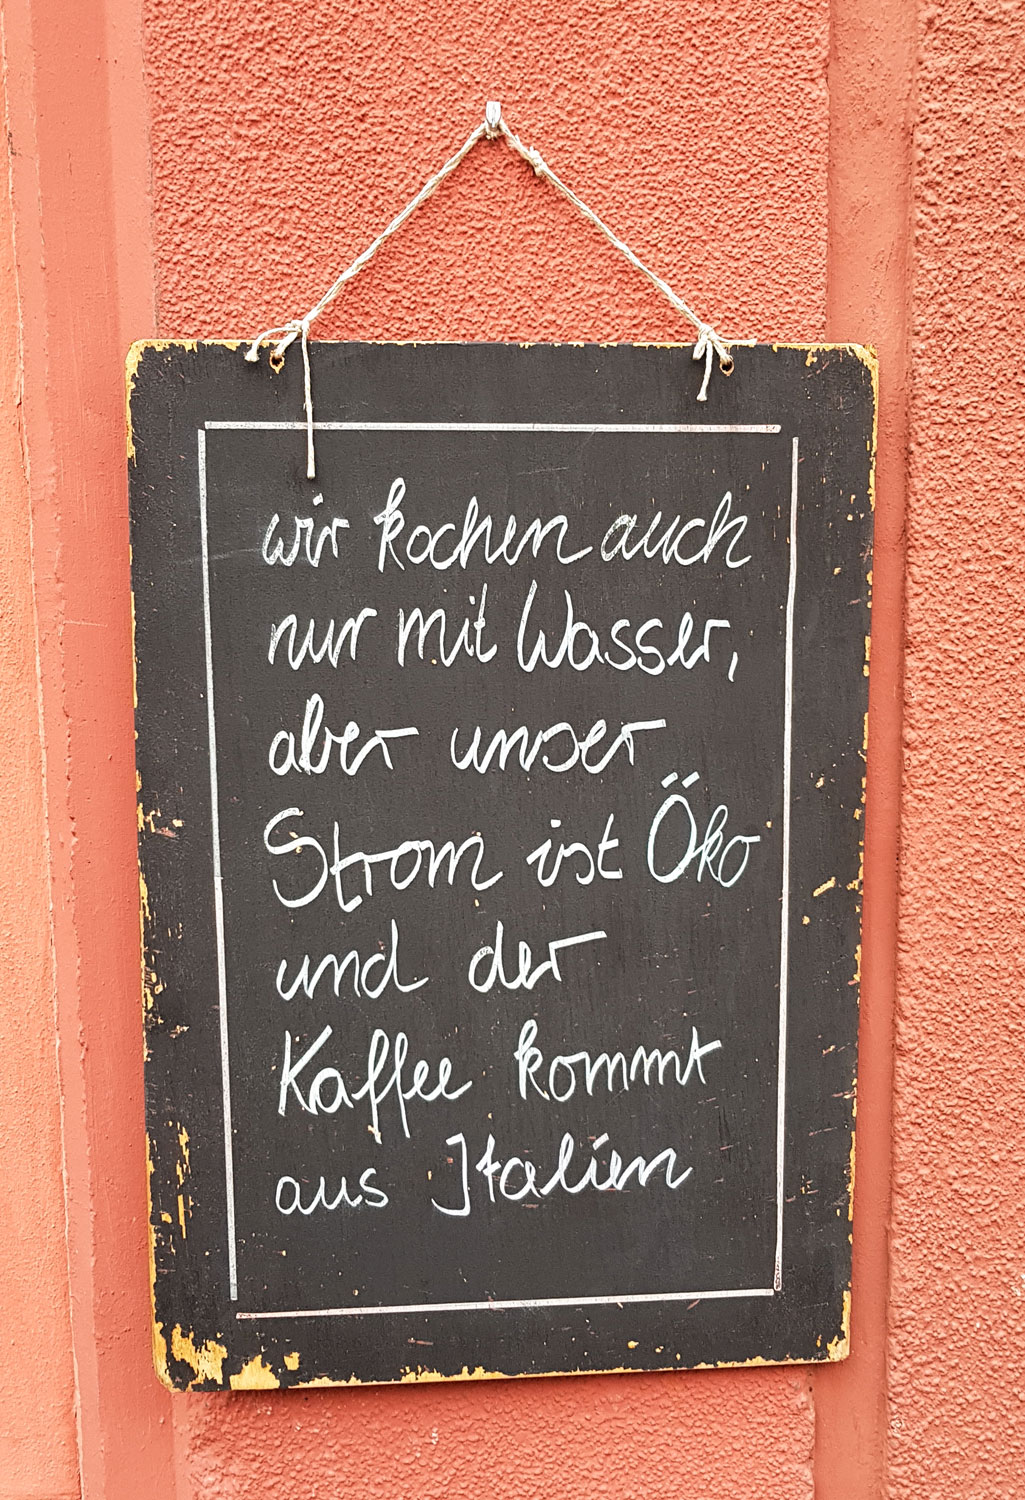 wir kochen auch
nur mit Wasser,
aber unser
Strom ist Öko
und der
Kaffee kommt
aus Italien